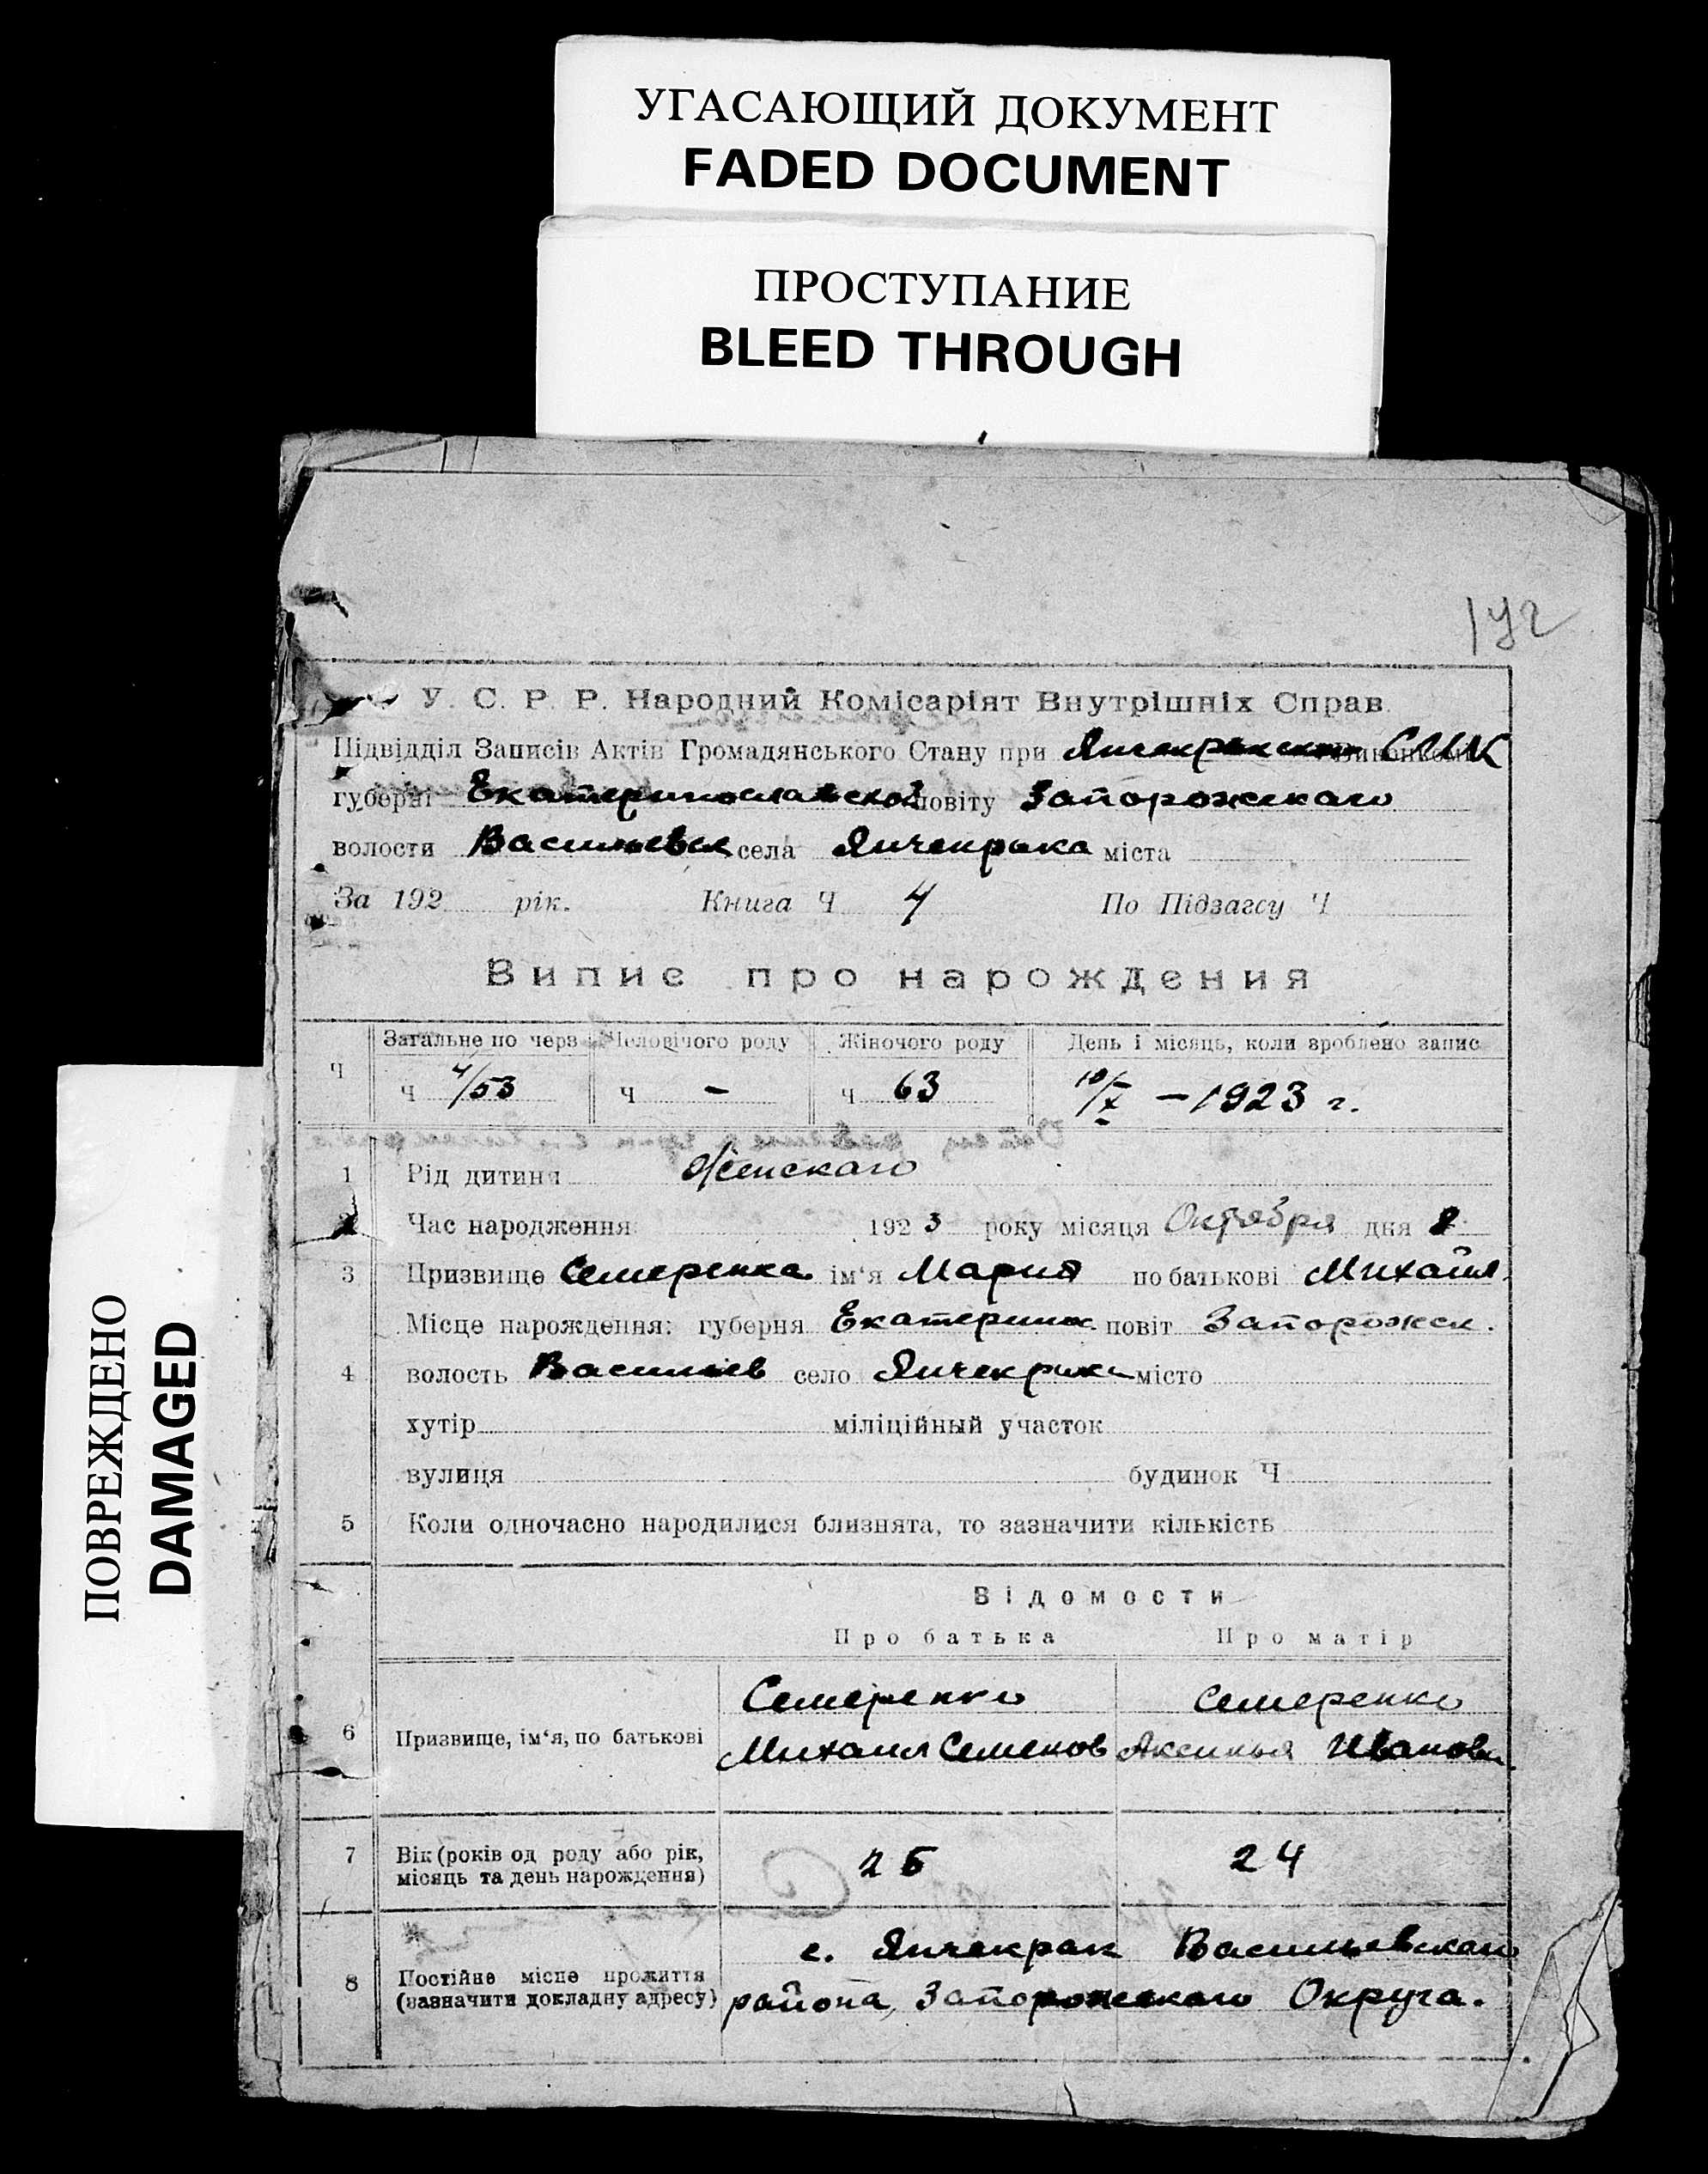 УГАСАЮЩИЙ ДОКУМЕНТ
FADED DOCUMENT
ПРОСТУПАНИЕ
BLEED THROUGH
ПОВРЕЖДЕНО
DAMAGED
У. С. Р. Р. Народний Комісаріят Внутрішніх Справ
Підвідділ Записів Актів Громадянського Стану при Янчекракском
губерні Екатеринославской повіту Запорожскаго
волости Васильевск села Янчекрака міста
За 192 рік. Книга Ч 4 По Підзагсу Ч
Випис про нарождения
Ч Загальне по черз Чоловічого роду Жіночого роду День і місяць, коли зроблено запис
ч 4/53 ч – ч 63 10/X – 1923 г.
1 Рід дитини Женскаго
Час народження 1923 року місяця Октября дня 8
3 Призвище Семеренка ім'я Мария по батькові Михайл.
Місце нарождення: губерня Екатеринос. повіт Запорожск.
4 волость Васильев село Янчекрака місто
хутір міліційный участок
вулиця будинок Ч
5 Коли одночасно народилися близнята, то зазначити кількість
Відомости
Про батька Про матір
Семеренко Семеренко
6 Призвище, ім'я, по батькові Михаил Семенов Аксинья Ивановн.
7 Вік (років од роду або рік, місяць та день нарождення) 25 24
с. Янчекрак Васильевскаго
8 Постійне місце прожиття (зазначити докладну адресу) района, Запорожскаго Округа.